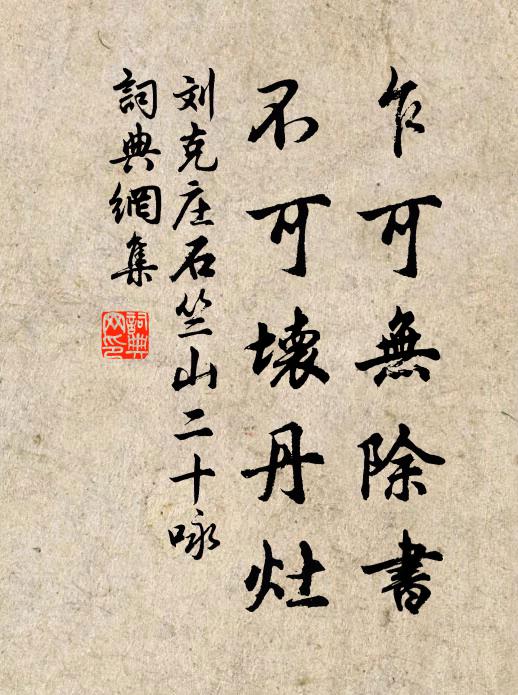 乍可無除書
不可壞丹灶
刘克庄石竺山二十咏
詞典網集
詞典网印